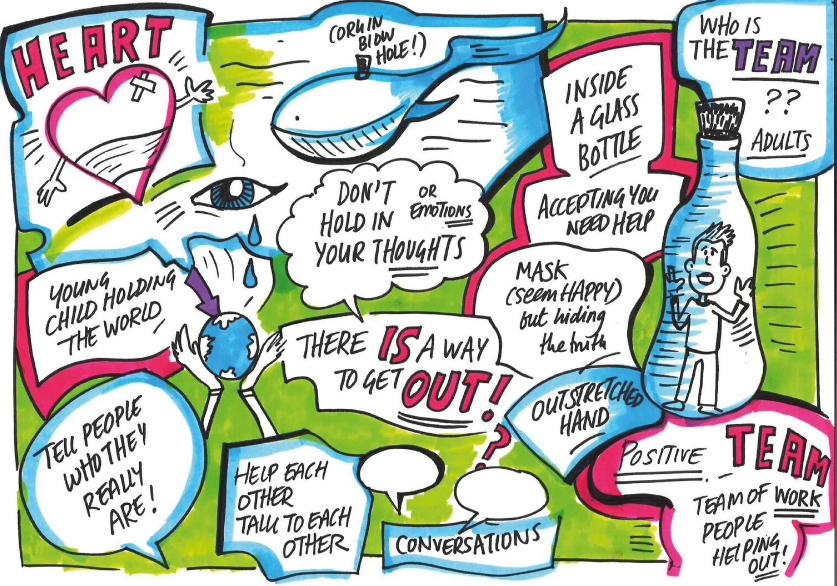 HEART
(CORK IN
BLOW
HOLE!)
WHO IS
THE TEAM
??
ADULTS
INSIDE
A GLASS
BOTTLE
DON'T
HOLD IN OR EMOTIONS
YOUR THOUGHTS
ACCEPTING YOU
NEED HELP
YOUNG
CHILD HOLDING
THE WORLD
MASK
(SEEM HAPPY)
but hiding
the truth
THERE IS A WAY
TO GET OUT!
?
OUTSTRETCHED
HAND
TELL PEOPLE
WHO THEY
REALLY
ARE!
HELP EACH
OTHER
TALK TO EACH
OTHER
CONVERSATIONS
POSITIVE TEAM
TEAM OF WORK
PEOPLE
HELPING
OUT!